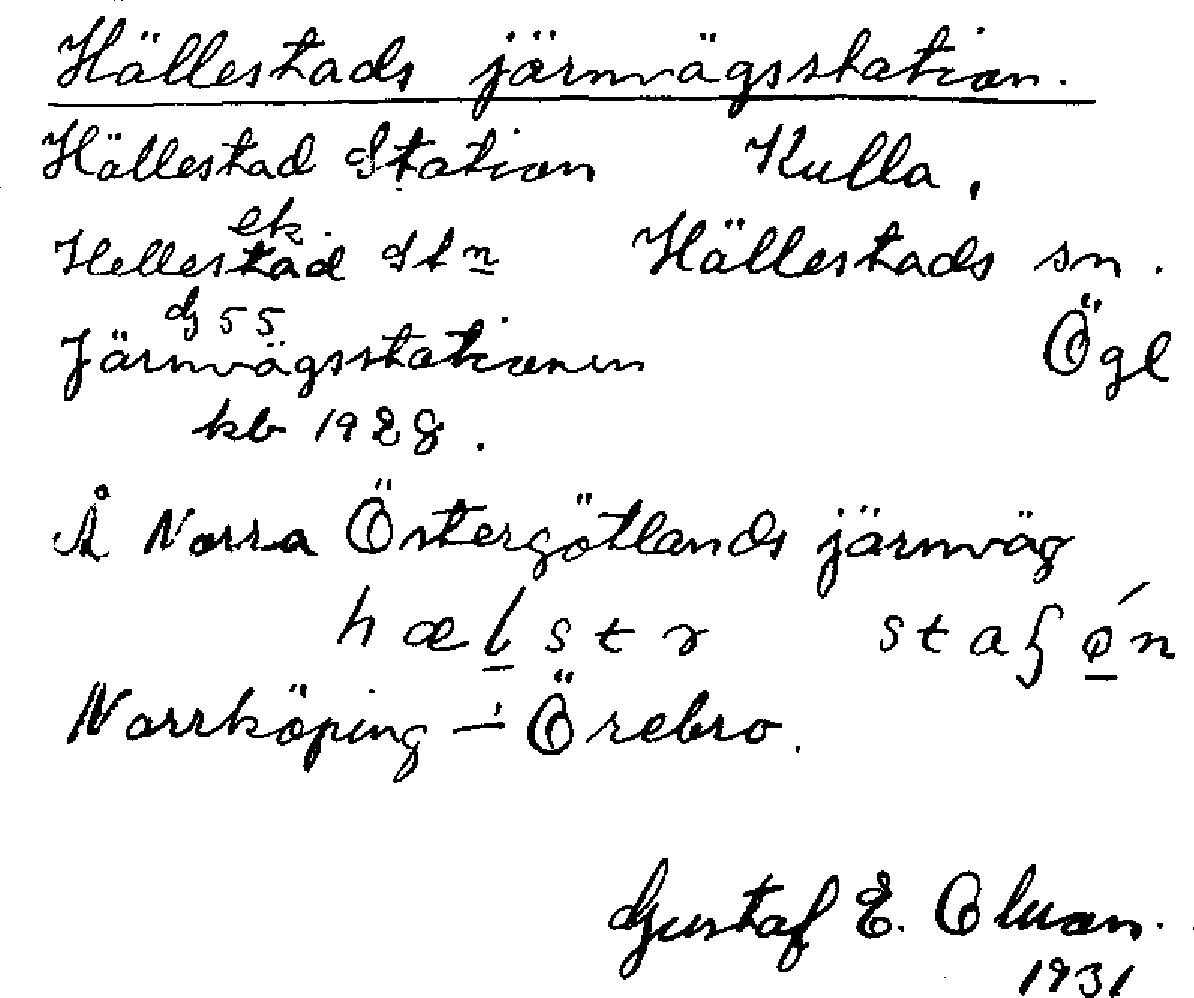 Hällestads järnvägsstation.
Hällestad Station Kulla,
ek.
Hellestad Stn Hällestads sn.
dj 55
Järnvägsstationen Ögl
kb 1928.
Å Norra Östergötlands järnväg
hælstr staʃón
Norrköping - Örebro.
Gustaf E.
1931